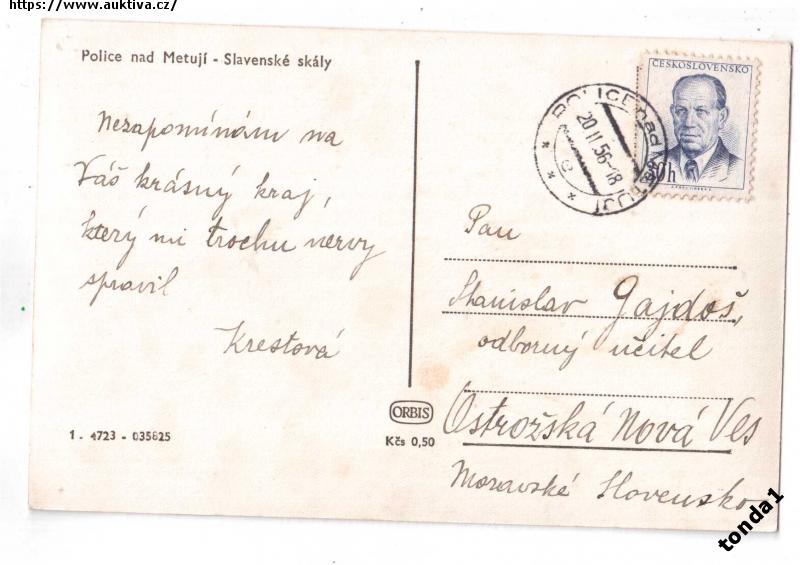 https://www.auktiva.cz/
Police nad Metují - Slavenské skály
Nezapomínám na
Váš krásný kraj,
který mi trochu nervy
spravil
Krestová
1 - 4723 - 035825
ORBIS
Kčs 0,50
ČESKOSLOVENSKO
POLICE nad METUJÍ
20 II 56-18
c
0h
Pan
Stanislav Gajdoš,
odborný učitel
Ostrožská Nová Ves
Moravské Slovensko
tonda1